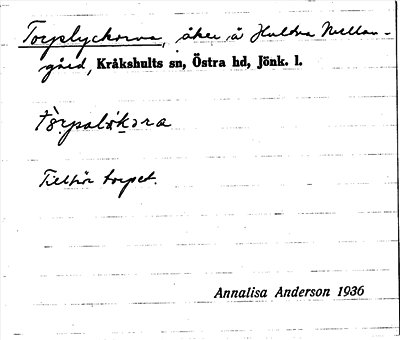 Torpslyckorna, åker å Huldra Mellan-
gård, Kråkshults sn, Östra hd, Jönk. l.
Tillhör torpet.
Annalisa Anderson 1936